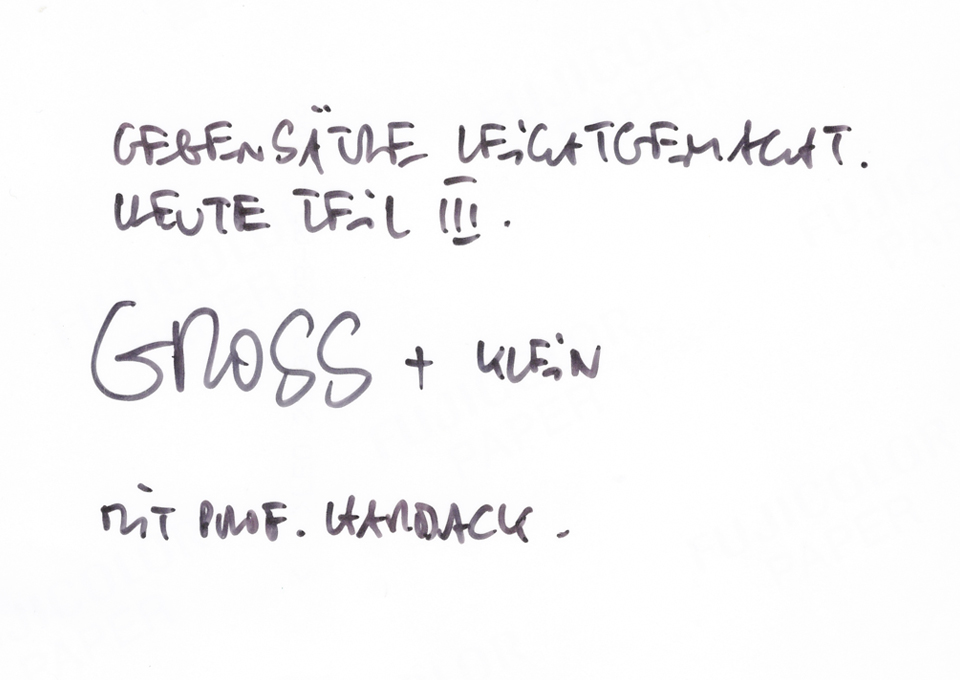 GEGENSÄTZE LEICHTGEMACHT.
HEUTE TEIL III.
GROSS + KLEIN
MIT PROF. HARDACK.